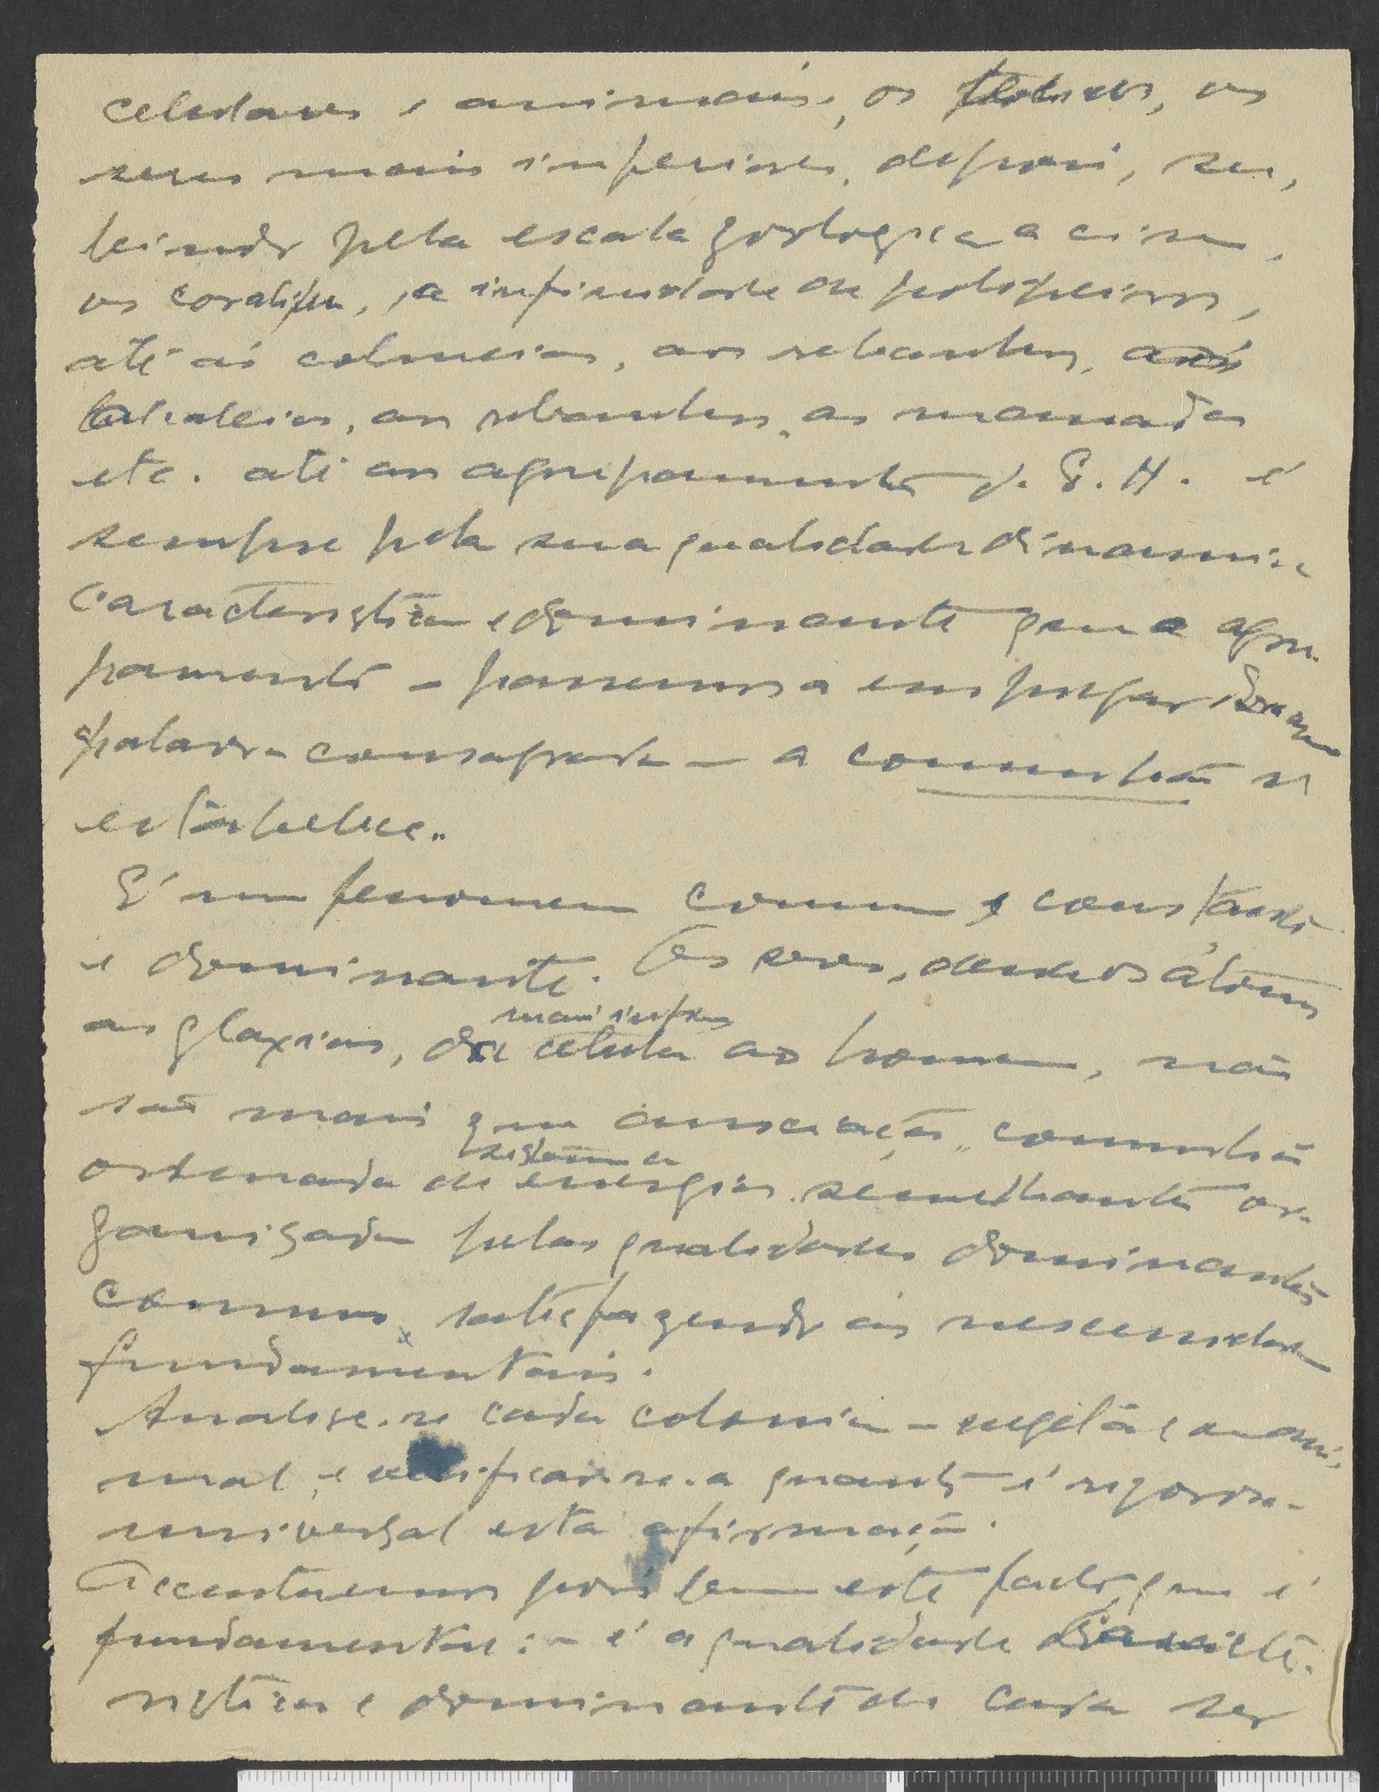 celulares e animais, os
seres mais inferiores, depois, su,
bindo pela escala zoologica acima,
os coralifer, a infinidade de polipeiros,
até ás colmeias, aos rebanhos, aos
os rebanhos, as manadas
etc. até ao agrupamento d. S. H. é
sempre pela sua qualidade dinamica
caracteristica e dominante que o agru-
pamento – passemos a empregar
palavra consagrada – a comunhão se
estabelece..
É um fenomeno comum e constante
e dominante. Os seres, desde os átomos
as glaxias, da celula mais simples ao homem, não
são mais que associações, comunhão
ordenada de sistema de energias semelhantes or-
ganisada pelas qualidades dominantes
comuns, satisfazendo ás necessidades
fundamentais.
Analise-se cada colonia – vegetal e ani-
mal, e verificar-se-a quanto é rigorosa-
universal esta afirmação.
Accentuemos pois bem este facto, que é
fundamental: – é a qualidade caracte-
ristica e dominante de cada ser